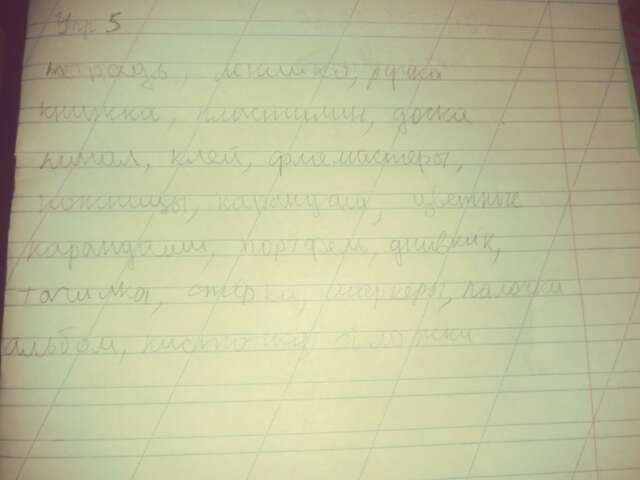 Упр 5
тетрадь, линейка, ручка
книжка, пластилин, доска
пинал, клей, фломастеры,
ножницы, карандаш, цветные
карандаши, портфель, дневник,
точилка, стёрка, маркеры, палочки
альбом, кисточка